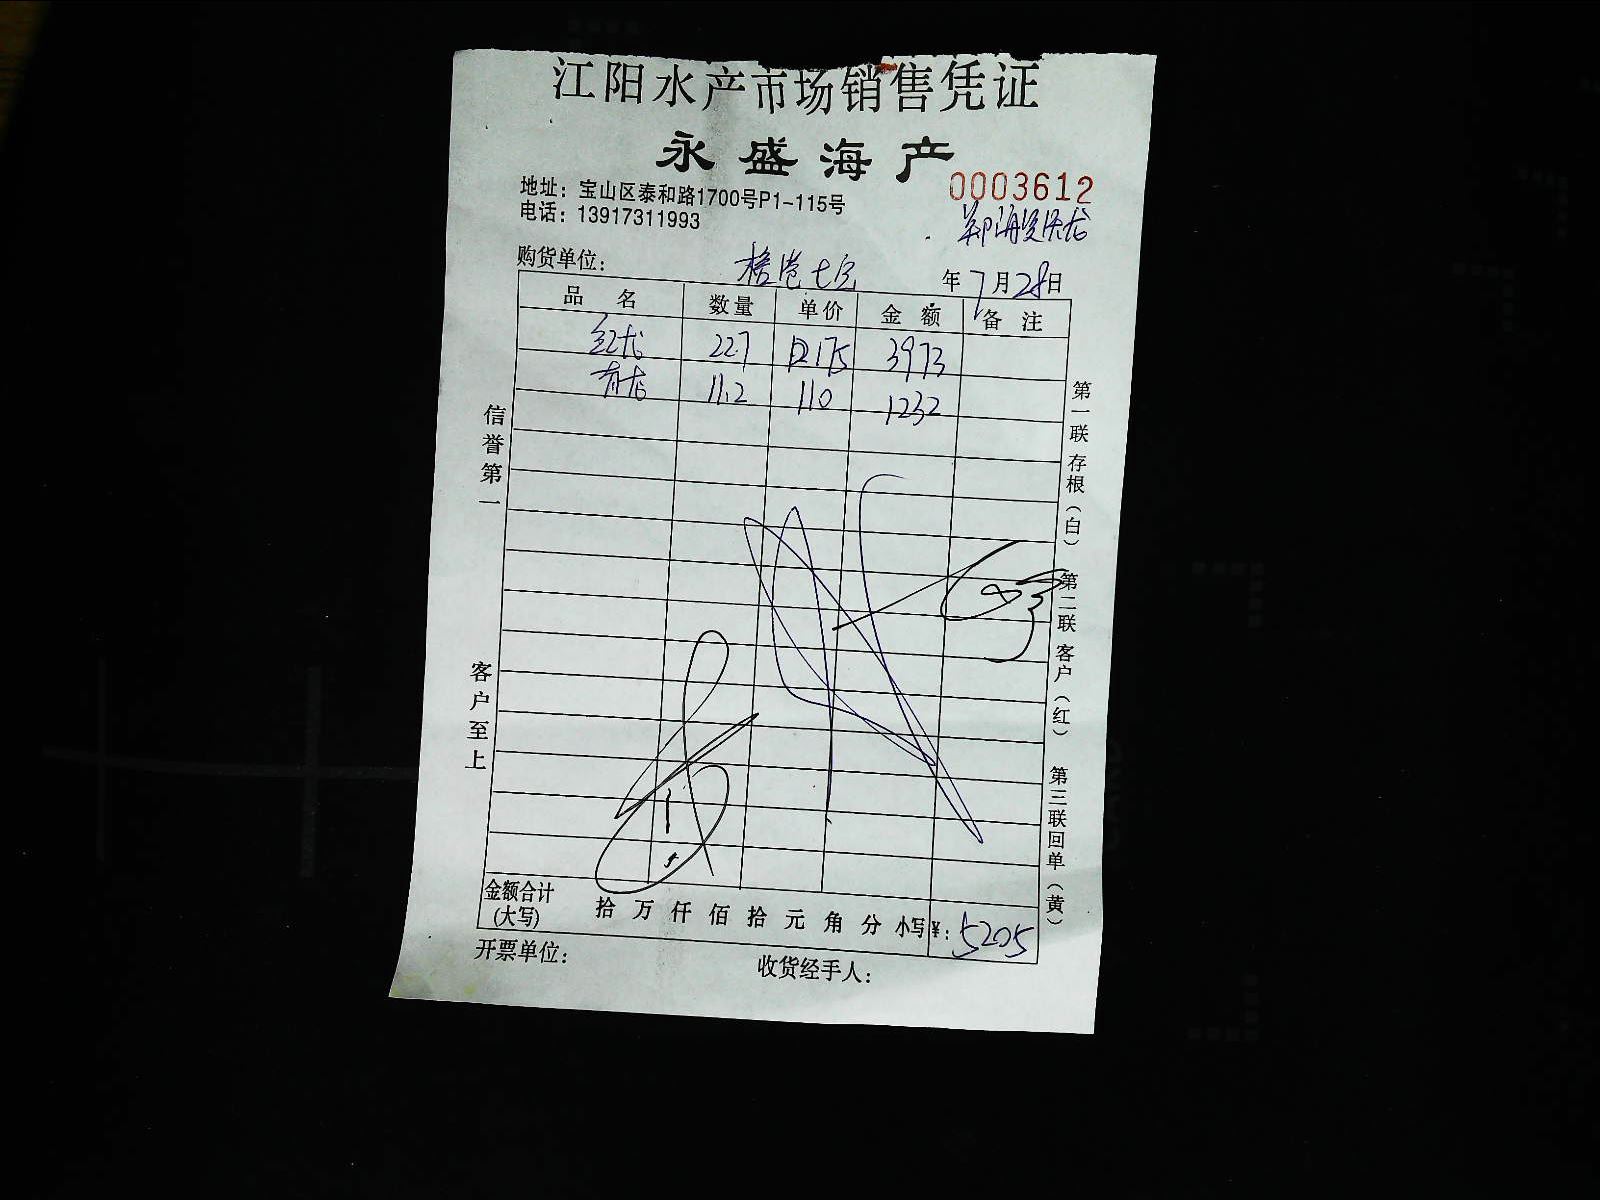 江阳水产市场销售凭证
永盛海产
地址：宝山区泰和路1700号P1-115号
0003612
电话：13917311993
购货单位：
年7月28日
品名 数量 单价 金额 备注
红龙 22.7 175 3973
青龙 11.2 110 1232
信誉第一
客户至上
第一联存根（白）
第二联客户（红）
第三联回单（黄）
金额合计
(大写)
拾万仟佰拾元角分 小写¥：5205
开票单位：
收货经手人：